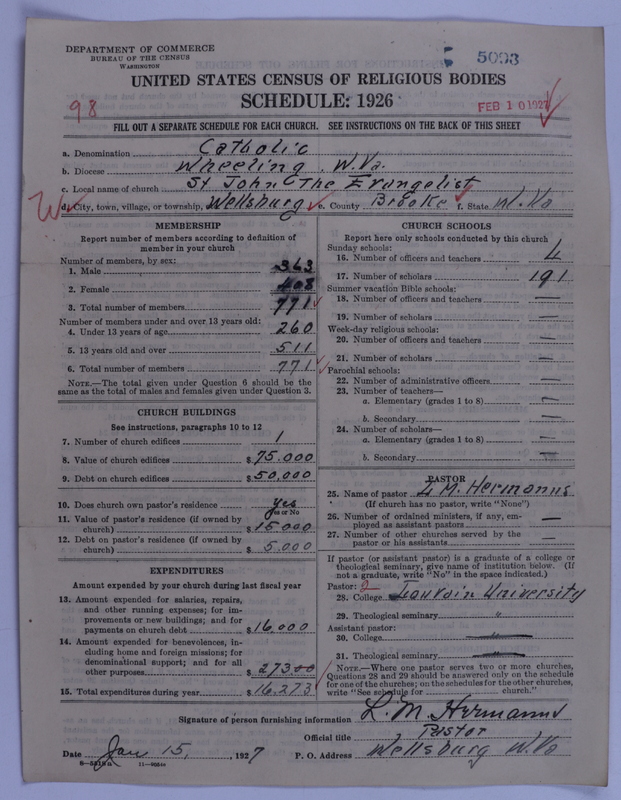 DEPARTMENT OF COMMERCE
BUREAU OF THE CENSUS
WASHINGTON
5093
UNITED STATES CENSUS OF RELIGIOUS BODIES
SCHEDULE: 1926
98
FEB 10 1927
FILL OUT A SEPARATE SCHEDULE FOR EACH CHURCH. SEE INSTRUCTIONS ON THE BACK OF THIS SHEET
a. Denomination Catholic
b. Diocese Wheeling W. Va.
c. Local name of church St John The Evangelist
d. City, town, village, or township, Wellsburg e. County Brooke f. State W. Va
MEMBERSHIP
Report number of members according to definition of
member in your church
Number of members, by sex:
1. Male 363
2. Female 408
3. Total number of members 771
Number of members under and over 13 years old:
4. Under 13 years of age 260
5. 13 years old and over 511
6. Total number of members 771
NOTE.—The total given under Question 6 should be the
same as the total of males and females given under Question 3.
CHURCH BUILDINGS
See instructions, paragraphs 10 to 12
7. Number of church edifices 1
8. Value of church edifices $75.000
9. Debt on church edifices $50,000
10. Does church own pastor's residence? yes
Yes or No
11. Value of pastor's residence (if owned by
church) $15000
12. Debt on pastor's residence (if owned by
church) $5,000
EXPENDITURES
Amount expended by your church during last fiscal year
13. Amount expended for salaries, repairs,
and other running expenses; for im-
provements or new buildings; and for
payments on church debt $16,000
14. Amount expended for benevolences, in-
cluding home and foreign missions; for
denominational support; and for all
other purposes $27300
15. Total expenditures during year $16,273
CHURCH SCHOOLS
Report here only schools conducted by this church
Sunday schools:
16. Number of officers and teachers 4
17. Number of scholars 191
Summer vacation Bible schools:
18. Number of officers and teachers —
19. Number of scholars —
Week-day religious schools:
20. Number of officers and teachers —
21. Number of scholars —
Parochial schools:
22. Number of administrative officers —
23. Number of teachers—
a. Elementary (grades 1 to 8) —
b. Secondary —
24. Number of scholars—
a. Elementary (grades 1 to 8) —
b. Secondary —
PASTOR
25. Name of pastor L M. Hermanns
(If church has no pastor, write "None")
26. Number of ordained ministers, if any, em-
ployed as assistant pastors —
27. Number of other churches served by the
pastor or his assistants —
If pastor (or assistant pastor) is a graduate of a college or
theological seminary, give name of institution below. (If
not a graduate, write "No" in the space indicated.)
Pastor:
28. College University
29. Theological seminary "
Assistant pastor:
30. College —
31. Theological seminary —
NOTE.—Where one pastor serves two or more churches,
Questions 28 and 29 should be answered only on the schedule
for one of the churches; on the schedules for the other churches,
write "See schedule for church."
Signature of person furnishing information L. M. Hermanns
Official title Pastor
Date Jan 15, 1927 P. O. Address Wellsburg W. Va